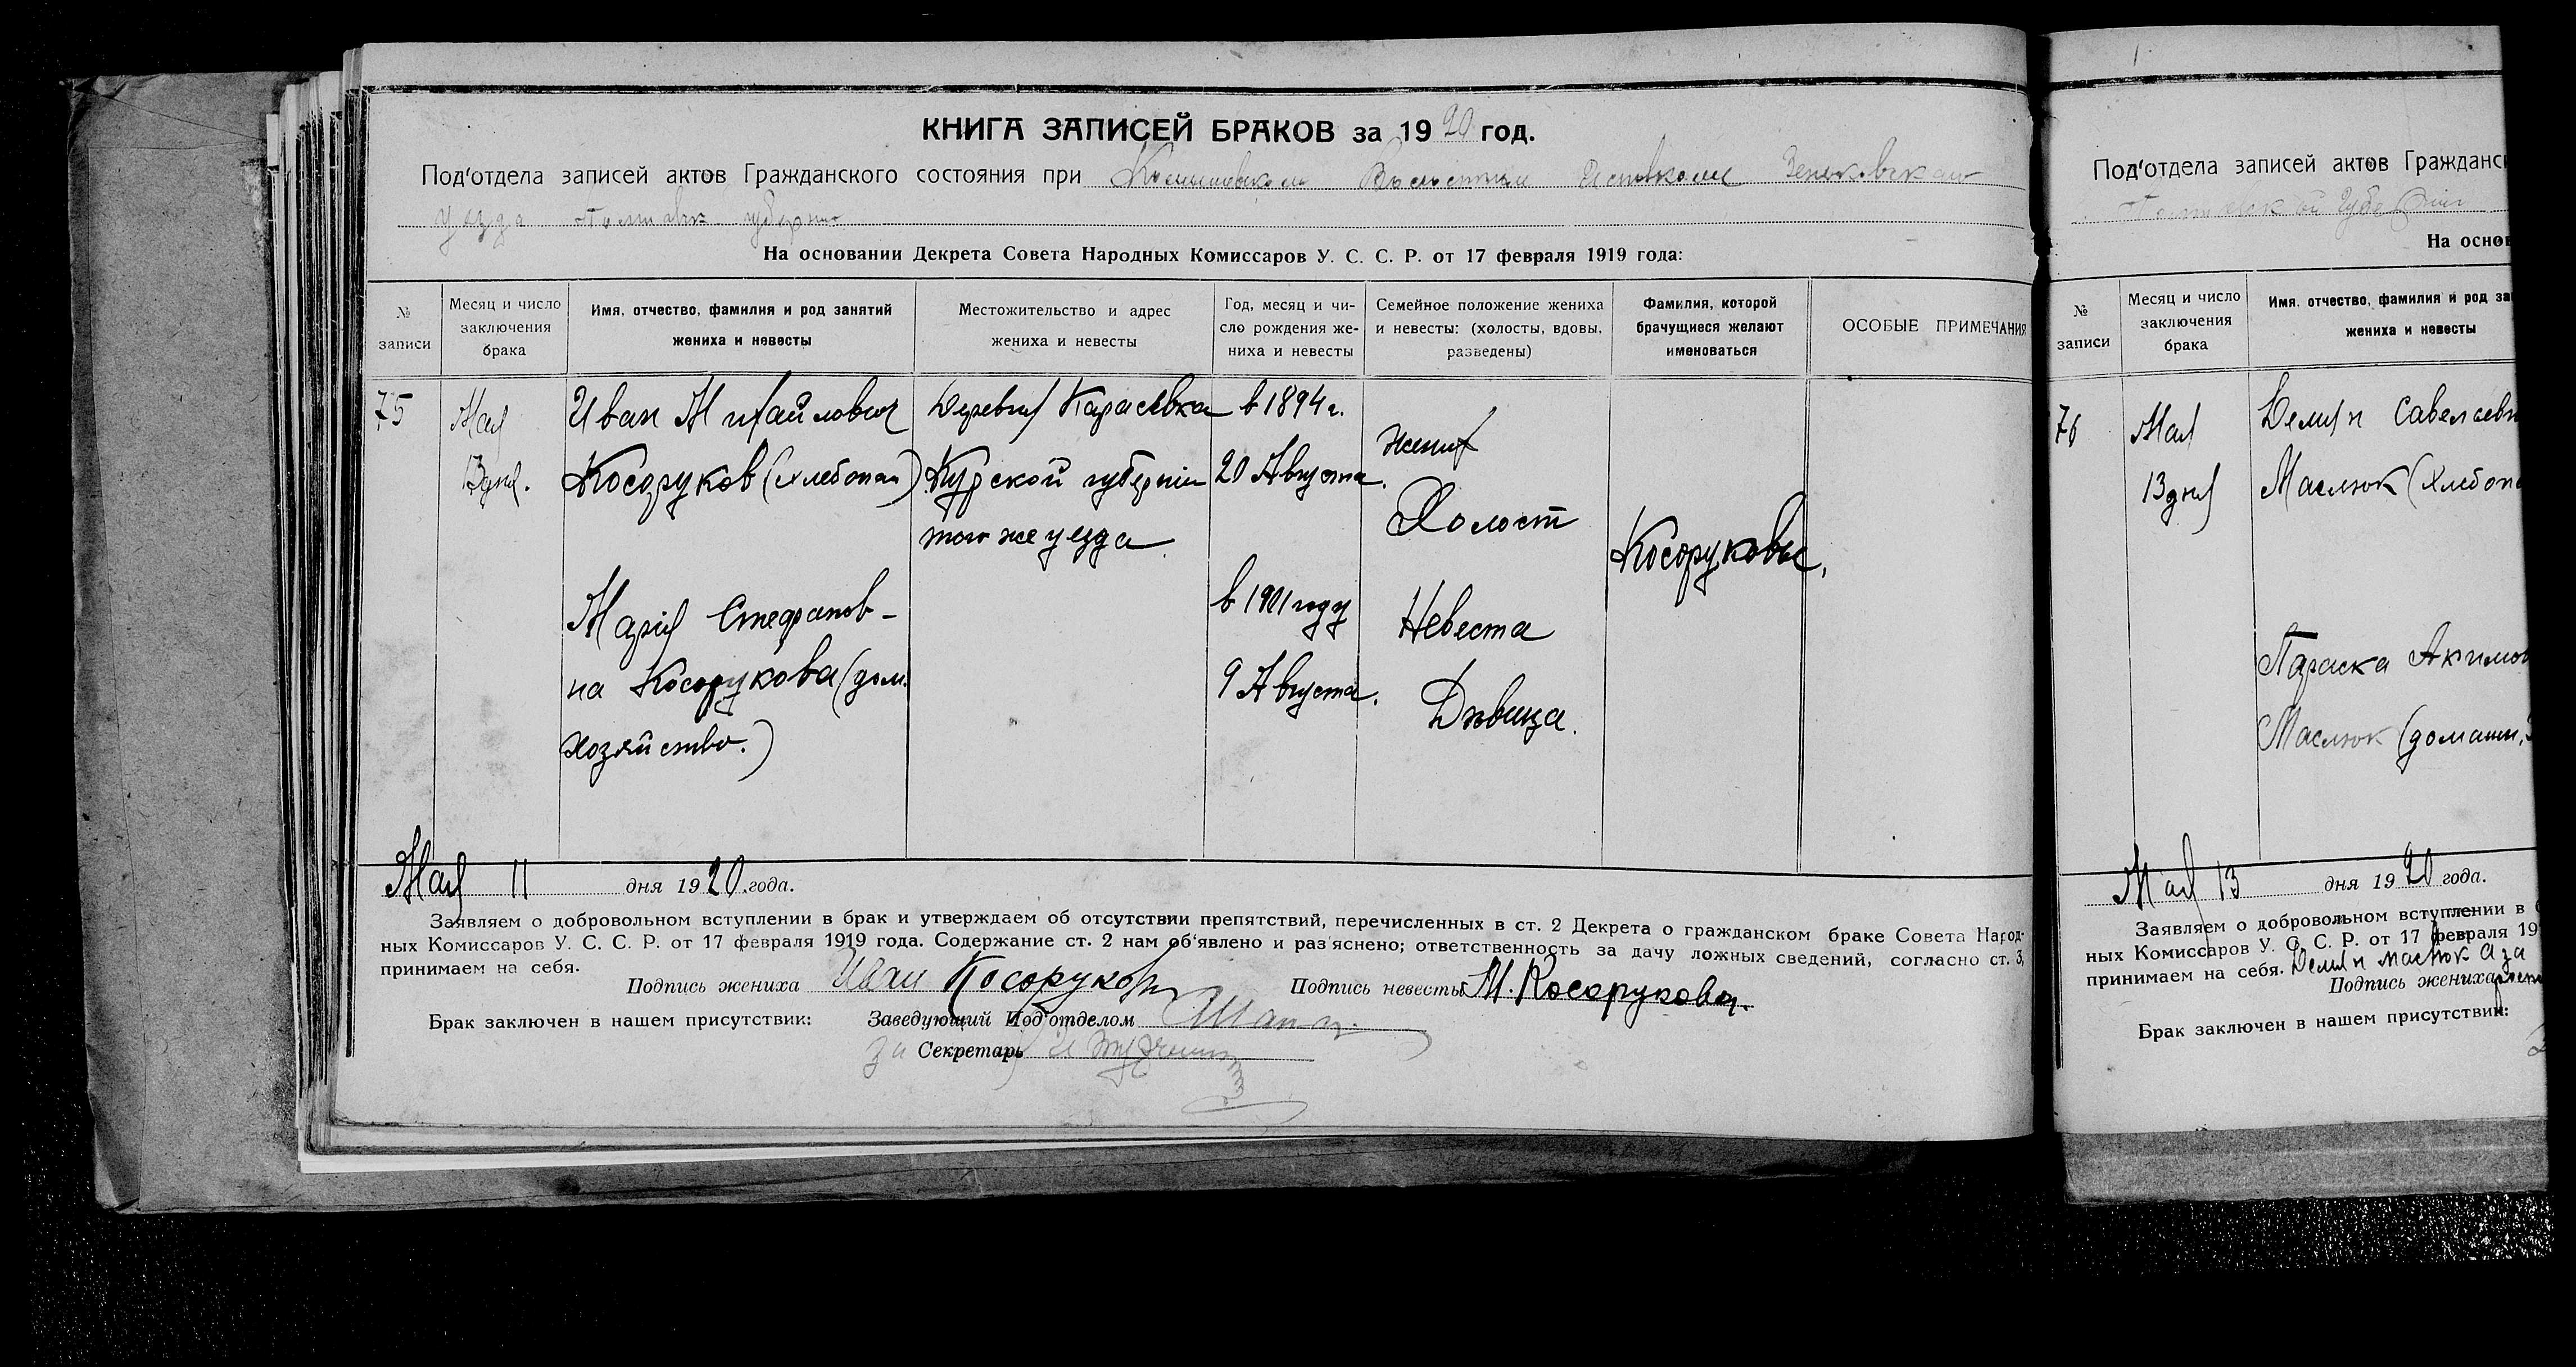 КНИГА ЗАПИСЕЙ БРАКОВ за 1920 год.
Под'отдела записей актов Гражданского состояния при Волостным Зеньковскаго
уезда губернии
На основании Декрета Совета Народных Комиссаров У. С. С. Р. от 17 февраля 1919 года:
№ записи
Месяц и число заключения брака
Имя, отчество, фамилия и род занятий жениха и невесты
Местожительство и адрес жениха и невесты
Год, месяц и число рождения жениха и невесты
Семейное положение жениха и невесты: (холосты, вдовы, разведены)
Фамилия, которой брачущиеся желают именоваться
ОСОБЫЕ ПРИМЕЧАНИЯ
75
Мая
13 дня.
Иван Михайлович
Косоруков (хлебопаш)
Мария Стефанов-
на Косорукова (дом.
хозяйство.)
Деревня Карасевка
Курской губернии
того же уезда
в 1894 г.
20 Августа.
в 1901 году
9 Августа.
Жених
Холост
Невеста
Дѣвица.
Косоруковы.
Мая 11 дня 1920 года.
Заявляем о добровольном вступлении в брак и утверждаем об отсутствии препятствий, перечисленных в ст. 2 Декрета о гражданском браке Совета Народ-
ных Комиссаров У. С. С. Р. от 17 февраля 1919 года. Содержание ст. 2 нам об'явлено и раз'яснено; ответственность за дачу ложных сведений, согласно ст. 3,
принимаем на себя.
Подпись жениха Иван Косоруков Подпись невесты М. Косорукова.
Брак заключен в нашем присутствии: Заведующий Под'отделом
за Секретарь
Под'отдела записей актов Гражданск
губернии
На основ
№ записи
Месяц и число заключения брака
Имя, отчество, фамилия и род за
жениха и невесты
76
Мая
13 дня
Демян Савелиевич
Маслюк (хлебопа
Параска Акимов
Маслюк (домашн.
Мая 13 дня 1920 года.
Заявляем о добровольном вступлении в
ных Комиссаров У. С. С. Р. от 17 февраля 19
принимаем на себя. Демян Маслюк а за
Подпись жениха
Брак заключен в нашем присутствии: